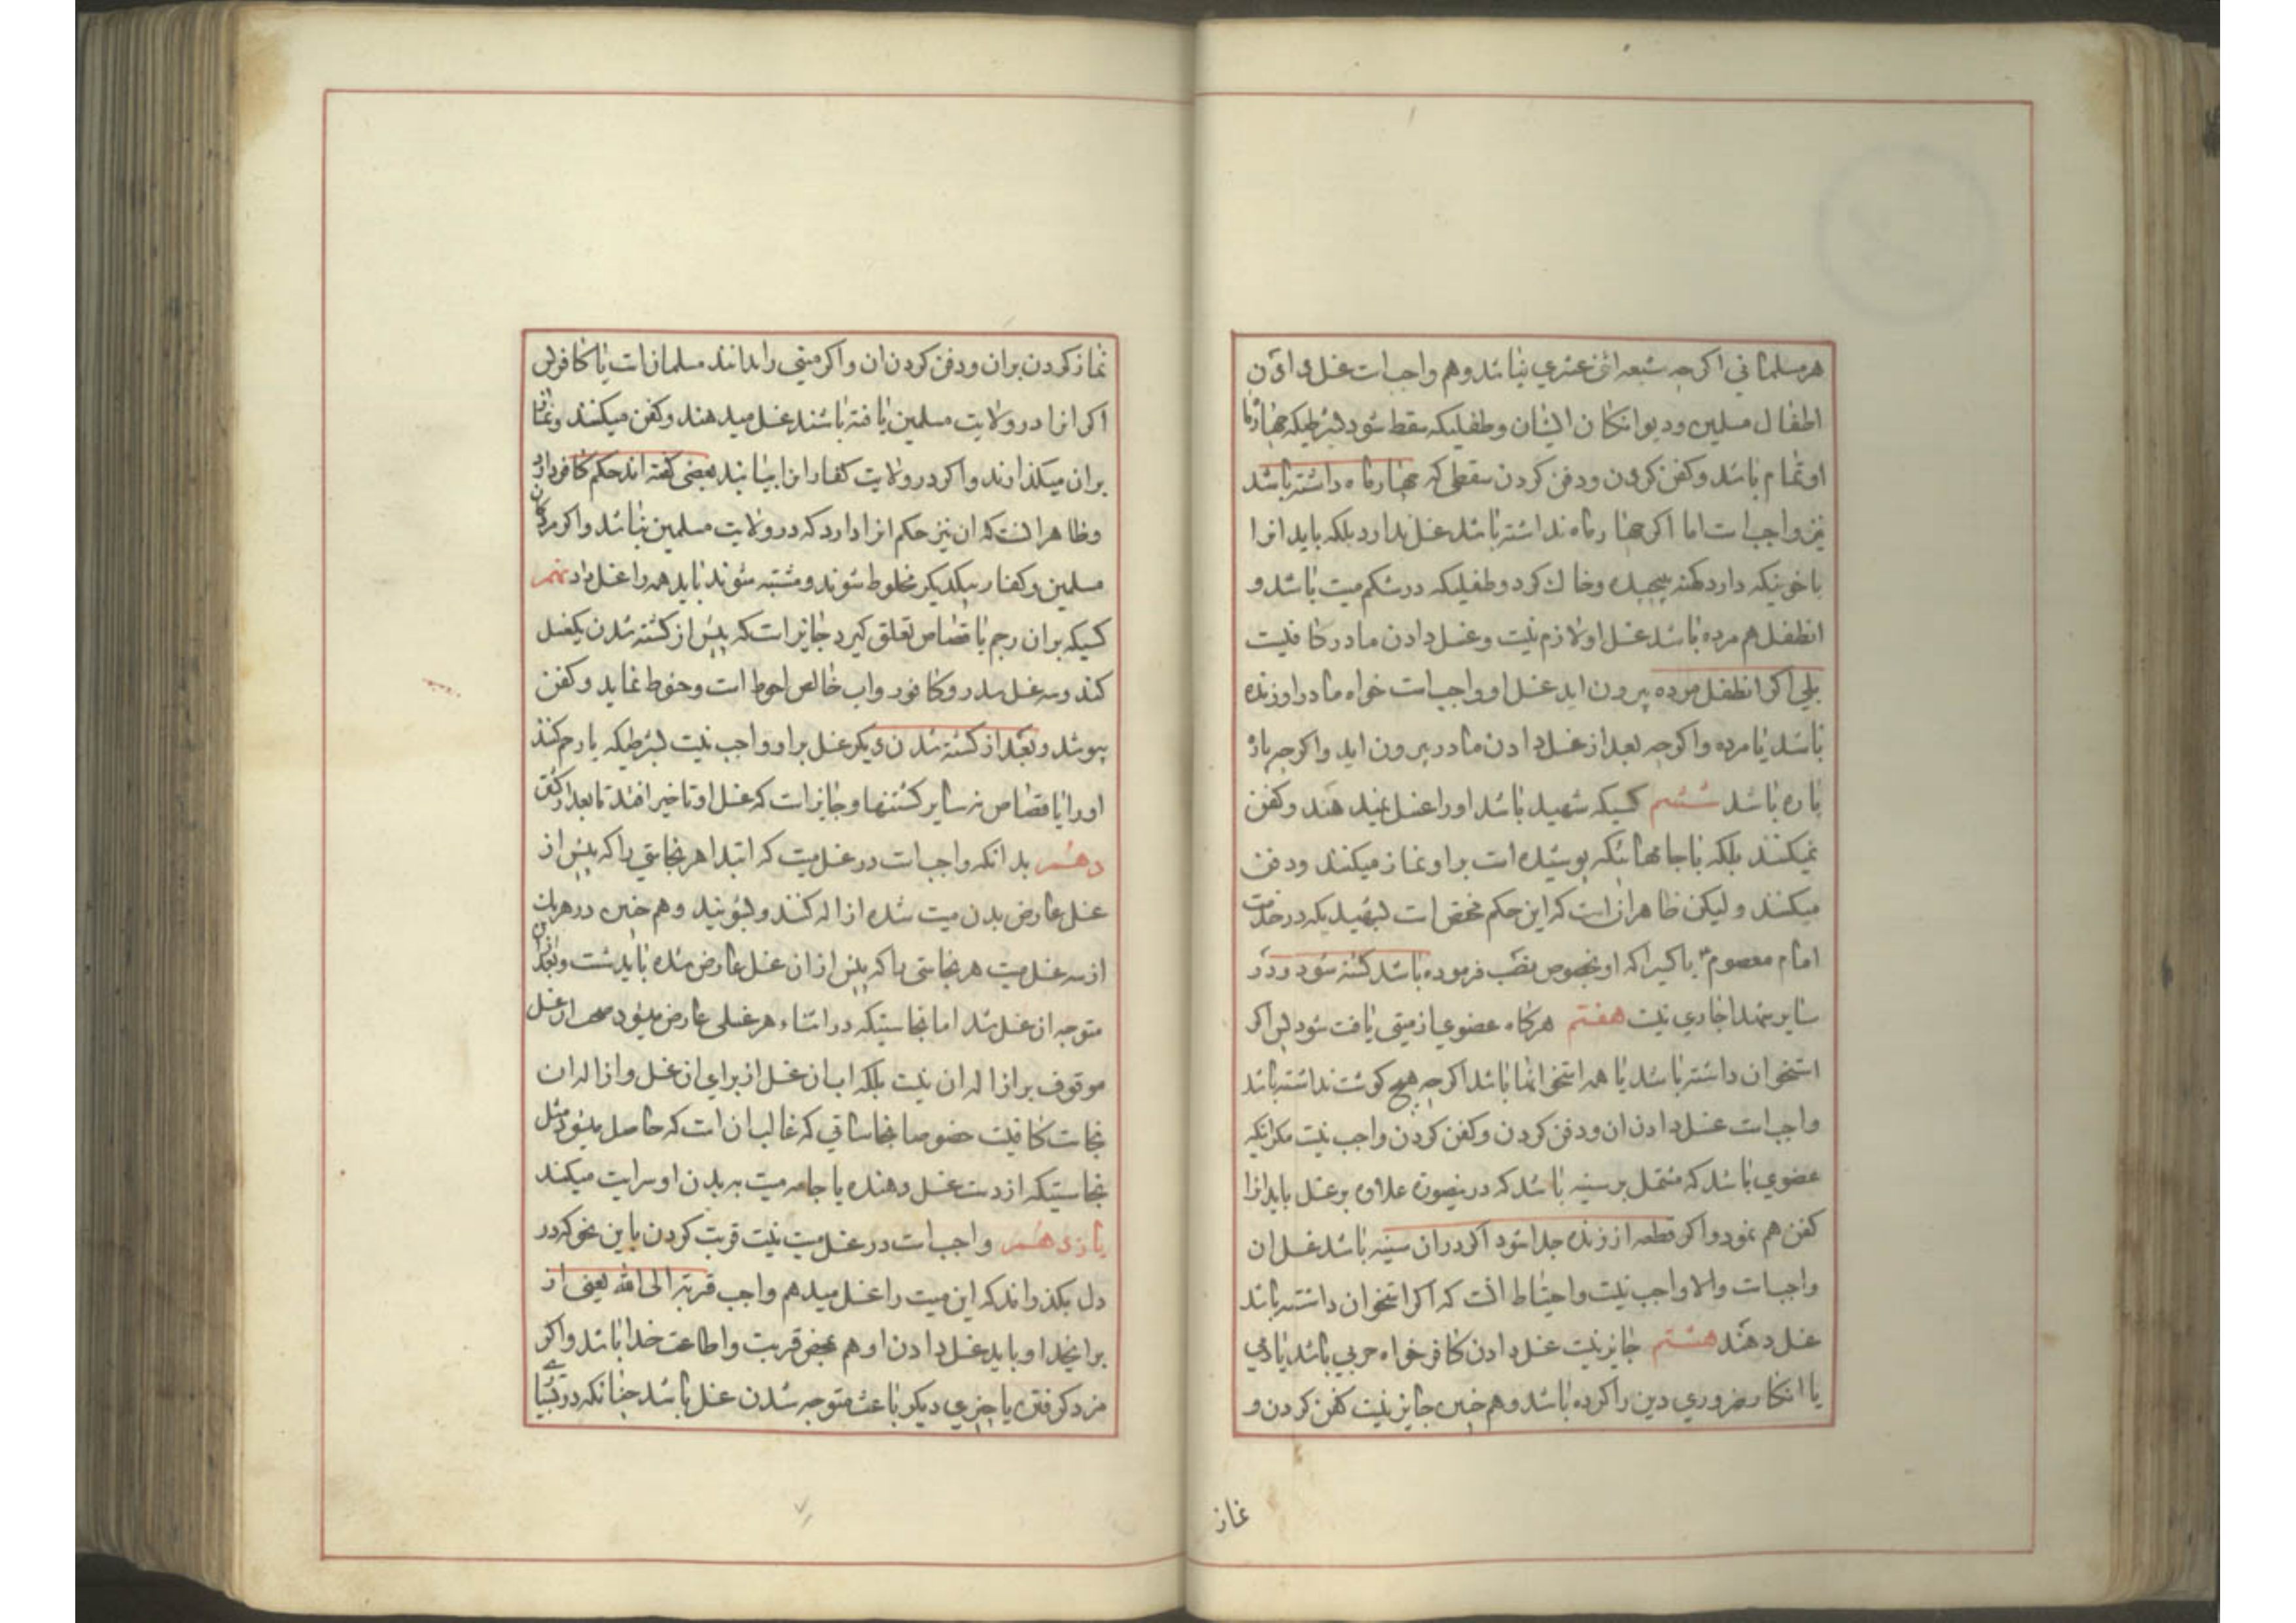 هر مسلمانی اکرچه شیعه اثنی عشری نباشد وهم واجبست غسل دادن
اطفال مسلمین ودیوانکان ایشان وطفلیکه سقط شود بشرطیکه چهار ماه
او تمام باشد وکفن کردن ودفن کردن سقطی که چهار ماه داشته باشد
نیز واجبست اما اکر چهار ماه نداشته باشد غسل ندارد بلکه باید انرا
با خونیکه دارد بلته پیچیده وخاک کرد وطفلیکه در شکم میت باشد و
انطفل هم مرده باشد غسل او لازم نیست وغسل دادن مادر کافیست
بلی اکر انطفل مرده بیرون اید غسل او واجبست خواه مادر او زنده
باشد یا مرده واکرچه بعد از غسل دادن مادر بیرون اید واکرچه پاره
پاره باشد ششم کسیکه شهید باشد او را غسل نمیدهند وکفن
نمیکنند بلکه با جامهائیکه پوشیده است بر او نماز میکنند ودفن
میکنند ولیکن ظاهر انست که این حکم مختص است بشهیدیکه در خدمت
امام معصوم یا کسیرا که او بخصوص نصب فرموده باشد کشته شود ودر
سایر شهدا جاری نیست هفتم هرکاه عضوی از میتی یافت شود پس اکر
استخوان داشته باشد یا همه استخوانها باشد اکرچه هیچ کوشت نداشته باشد
واجبست غسل دادن ان ودفن کردن وکفن کردن واجب نیست مکر انکه
عضوی باشد که مشتمل بر سینه باشد که در ینصورة علاوه بر غسل باید انرا
کفن هم نمود واکر قطعه از زنده جدا شود اکر در ان سینه باشد غسل ان
واجبست والا واجب نیست واحتیاط انست که اکر استخوان داشته باشد
غسل دهند هشتم جایز نیست غسل دادن کافر خواه حربی باشد یا ذمی
یا انکار ضروری دین را کرده باشد وهم چنین جایز نیست کفن کردن و
نماز
نماز کردن بران ودفن کردن ان واکر میتی را ندانند مسلمانست یا کافر پس
اکر انرا در ولایت مسلمین یافته باشند غسل میدهند وکفن میکنند ونماز
بران میکذارند واکر در ولایت کفار انرا بیابند بعضی کفته اند حکم کافر دارد
وظاهر انست که ان نیز حکم انرا دارد که در ولایت مسلمین بیابند واکر مردکان
مسلمین وکفار بیکدیکر مخلوط شوند ومشتبه شوند باید همه را غسل داد نهم
کسیکه بران رجم یا قصاص تعلق کیرد جایز است که پیش از کشته شدن یکغسل
کند وسه غسل سدر وکافور واب خالص احوط است وحنوط نماید وکفن
بپوشد وبعد از کشته شدن دیکر غسل بر او واجب نیست بشرطیکه یا رجم کنند
او را یا قصاص نه سایر کشتنها وجایز است که غسل او تاخیر افتد تا بعد از کشتن
دهم بدانکه واجبست در غسل میت که ابتدا هر نجاستی را که پیش از
غسل عارض بدن میت شده ازاله کنند وبشویند وهم چنین در هریک
از سه غسل میت هر نجاستی را که پیش از ان غسل عارض شده باید شست وبعد از ان
متوجه ان غسل شد اما نجاستیکه در اثناء هر غسلی عارض میشود صحت ان غسل
موقوف بر ازاله ان نیست بلکه اب ان غسل از برای ان غسل وازاله ان
نجاست کافیست خصوصا نجاساتی که غالب ان است که حاصل میشود مثل
نجاستیکه از دست غسل دهنده یا جامه میت به بدن او سرایت میکند
یازدهم واجبست در غسل میت نیت قربت کردن باین نحو که در
دل بکذراند که این میت را غسل میدهم واجب قربة الی الله یعنی از
برای خدا وباید غسل دادن او هم محض قربت واطاعت خدا باشد واکر
مزد کرفتن یا چیزی دیکر باعث متوجه شدن غسل باشد چنانکه در